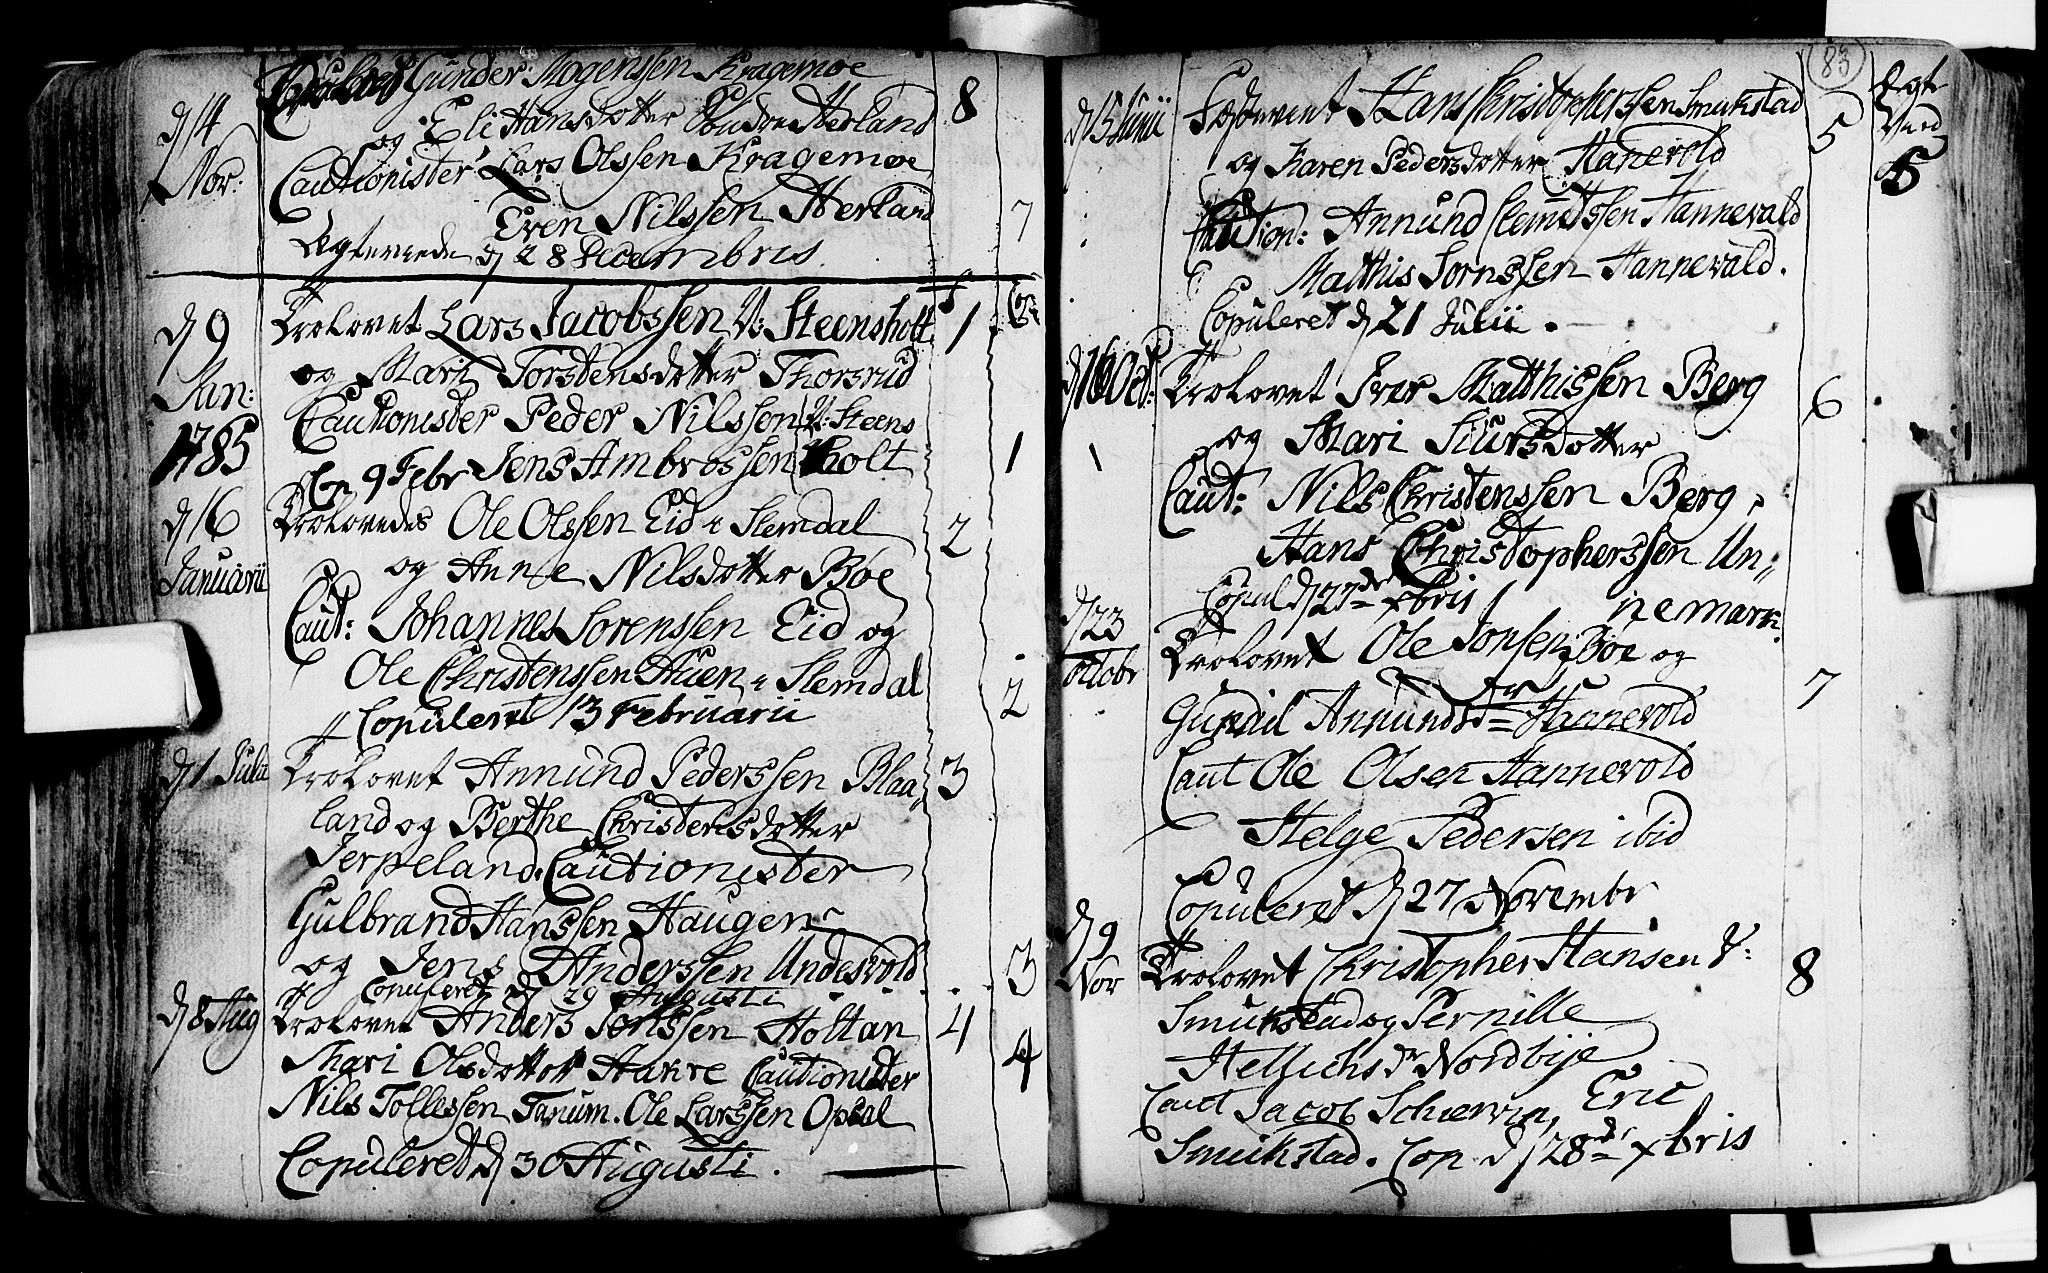 d 14 Nov: Gunder Mogenssen Kragemoe 8
og Eli Hansdotter Søndre Herland
Cautionister Lars Olssen Kragemoe
Even Nilssen Herland 7
Egteviede d 28 Decembris.
d 9 Jan: 1785 Trolovet Lars Jacobssen V: Steensholt 1
og Mari Torstensdotter Thorsrud
Cautionister Peder Nilssen V: Steens
den 9 Febr Jens Ambrossen holt 1
d 16 Januarii Trolovedes Ole Olssen Eid i Slemdal 2
og Anne Nilsdotter Boe
Caut: Johannes Sorenssen Eid og
Ole Christenssen Huen i Slemdal 2
Copuleret 13 Februarii
d 1 Julii Trolovet Annund Pederssen Blaa- 3
land og Berthe Christensdotter
Jerpeland. Cautionister
Gulbrand Hanssen Haugen
og Jens Anderssen Undesvold 3
Copuleret d 29 Augusti
d 8 Aug Trolovet Anders Jonssen Holtan 4
Mari Olsdotter Hakre Cautionister 4
Nils Tollessen Tanum. Ole Larssen Opsal
Copuleret d 30 Augusti.
83
d 15 Junii Hans Christopherssen Smukstad 5
Egte Vied 5
og Karen Pedersdotter Hanevold
Caution: Annund Clemetssen Hannevald
Matthis Sornssen Hannevald.
Copuleret d 21 Julii.
d 16 Oct: Trolovet Iver Matthissen Berg 6
og Mari Siursdotter
Caut: Nils Christenssen Berg,
Hans Christopherssen Un-
Copul d 27de xbris nemark.
d 23 Octobr Trolovet Ole Jonsen Boe og
Gunild Annundsdr Hannevold 7
Caut Ole Olsen Hannevold
Helge Pedersen ibid
Copuleret d 27 Novembr
d 9 Nov Trolovet Christopher Hansen V: 8
Smukstad og Pernille
Hellichsdr Nordbye
Caut Jacob Schervin, Eric
Smukstad. Cop d 28de xbris